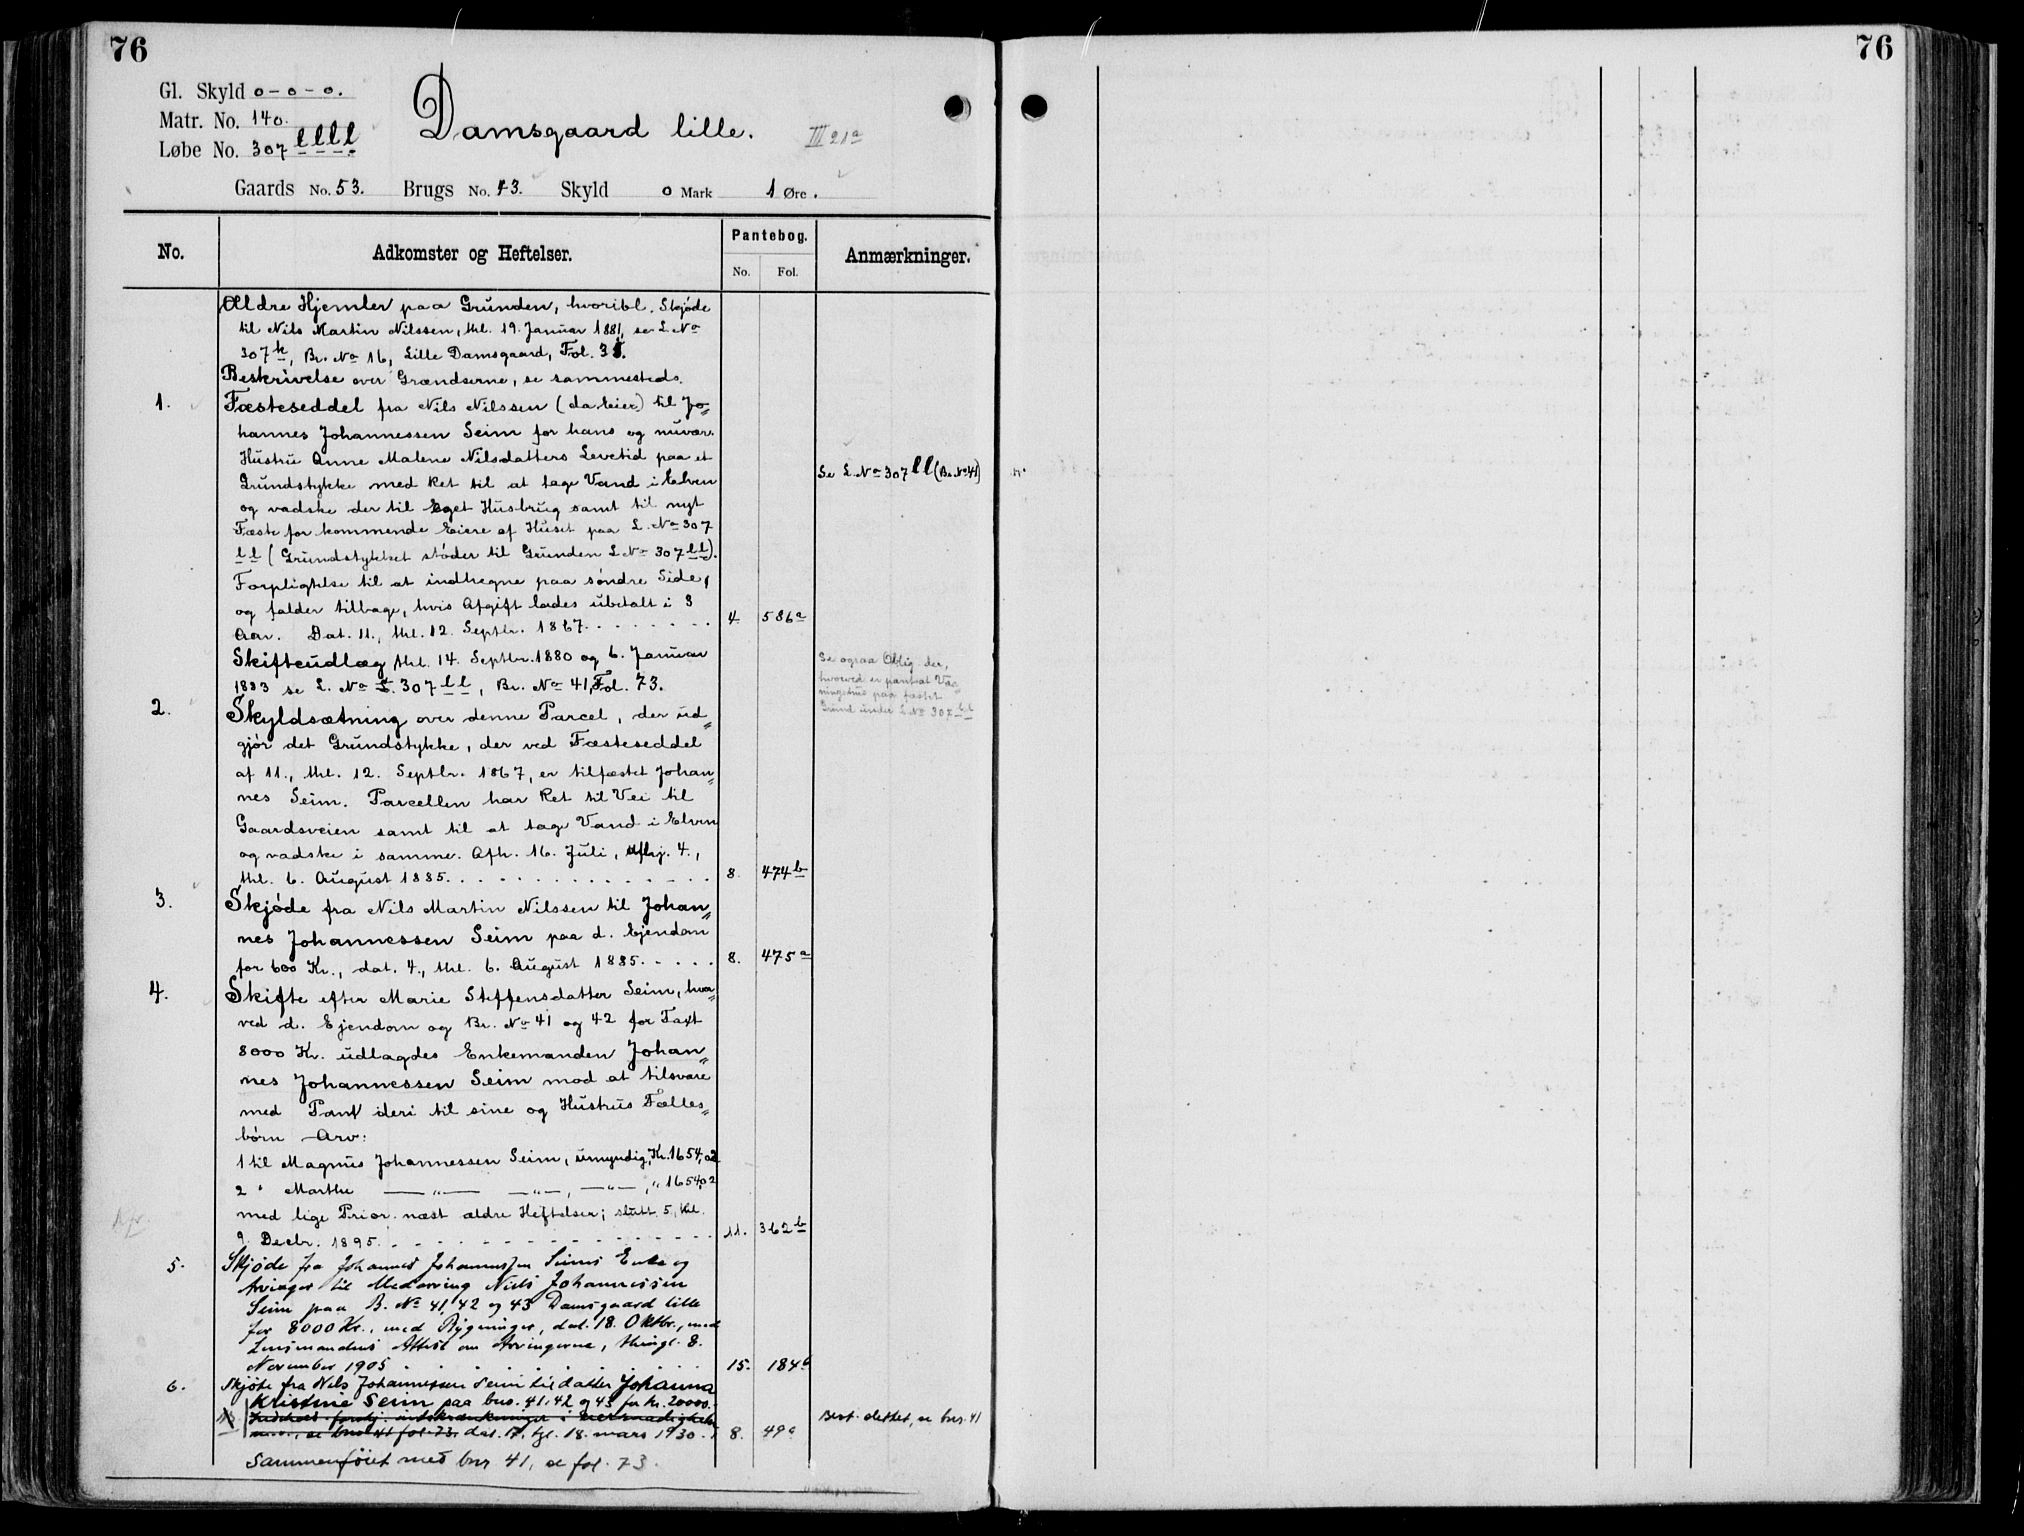 76
76
Gl. Skyld 0-0-0.
Matr. No. 140.
Løbe No. 307 llll
Damsgaard lille.
III 21a
Gaards No. 53. Brugs No. 43. Skyld 0 Mark 1 Øre.
No.
Adkomster og Heftelser.
Pantebog.
No. Fol.
Anmærkninger.
Ældre Hjemler paa Grunden, hvoribl. Skjøde
til Nils Martin Nilssen, thl. 19. Januar 1881, se L. No
307 k, Br. No 16, Lille Damsgaard, Fol.
Beskrivelse over Grændserne, se sammesteds.
1. Fæsteseddel fra Nils Nilssen (da Eier) til Jo-
hannes Johannessen Seim for hans og nuvær.
Hustru Anne Malene Nilsdatters Levetid paa et
Grundstykke med Ret til at tage Vand i Elven
og vadske der til Eget Husbrug samt til nyt
Fæste for kommende Eiere af Huset paa L. No 307
ll (Grundstykket støder til Grunden L No 307 ll).
Forpligtelse til at indhegne paa søndre Side,
og falder tilbage, hvis Afgift lades ubetalt i 3
Aar. Dat. 11., thl. 12. Septbr. 1867. 4. 586a
Se L. No 307 ll (Br. No 41)
Skifteudlæg thl. 14. Septbr. 1880 og 6. Januar
1883 se L. No 307 ll, Br. No 41, Fol. 73.
Se ogsaa Oblig. der,
hvorved er pantsat Vaa-
ningshus paa fæstet
Grund under L No 307 ll
2. Skyldsætning over denne Parcel, der ud-
gjør det Grundstykke, der ved Fæsteseddel
af 11., thl. 12. Septbr. 1867, er tilfæstet Johan-
nes Seim. Parcellen har Ret til Vei til
Gaardsveien samt til at tage Vand i Elven
og vadske i samme. Afh. 16. Juli, Afhj. 4.,
thl. 6. August 1885. 8. 474b
3. Skjøde fra Nils Martin Nilssen til Johan-
nes Johannessen Seim paa d. Ejendom
for 600 Kr., dat. 4., thl. 6. August 1885. 8. 475a
4. Skifte efter Marie Steffensdatter Seim, hvor-
ved d. Ejendom og Br. No 41 og 42 for Taxt
8000 Kr. udlagdes Enkemanden Johan-
nes Johannessen Seim mod at tilsvare
med Pant ideri til sine og Hustrus Fælles-
børn Arv:
1 til Magnus Johannessen Seim, umyndig, Kr. 1654,02
2 " Marthe —"— —"—, —"—, " 1654,02
med lige Prior. næst ældre Heftelser; slutt. 5, thl.
9. Decbr. 1895. 11. 362b
5. Skjøde fra Johannes Johannessen Seims Enke og
Arvinger til Medarving Niels Johannessen
Seim paa B. No 41, 42 og 43 Damsgaard lille
for 8000 Kr., med Bygninger, dat. 18. Oktbr., med
Lensmandens Attest om Arvingerne, thingl. 8.
November 1905 15. 184
6. Skjøte fra Nils Johannessen Seim til datter Johanna
Kristine Seim paa bno. 41, 42 og 43 for kr. 20000.-
dat. 17. tgl. 18. mars 1930. 8. 49a
Best. slettet, se bnr. 41
Sammenføiet med bnr 41, se fol. 73.